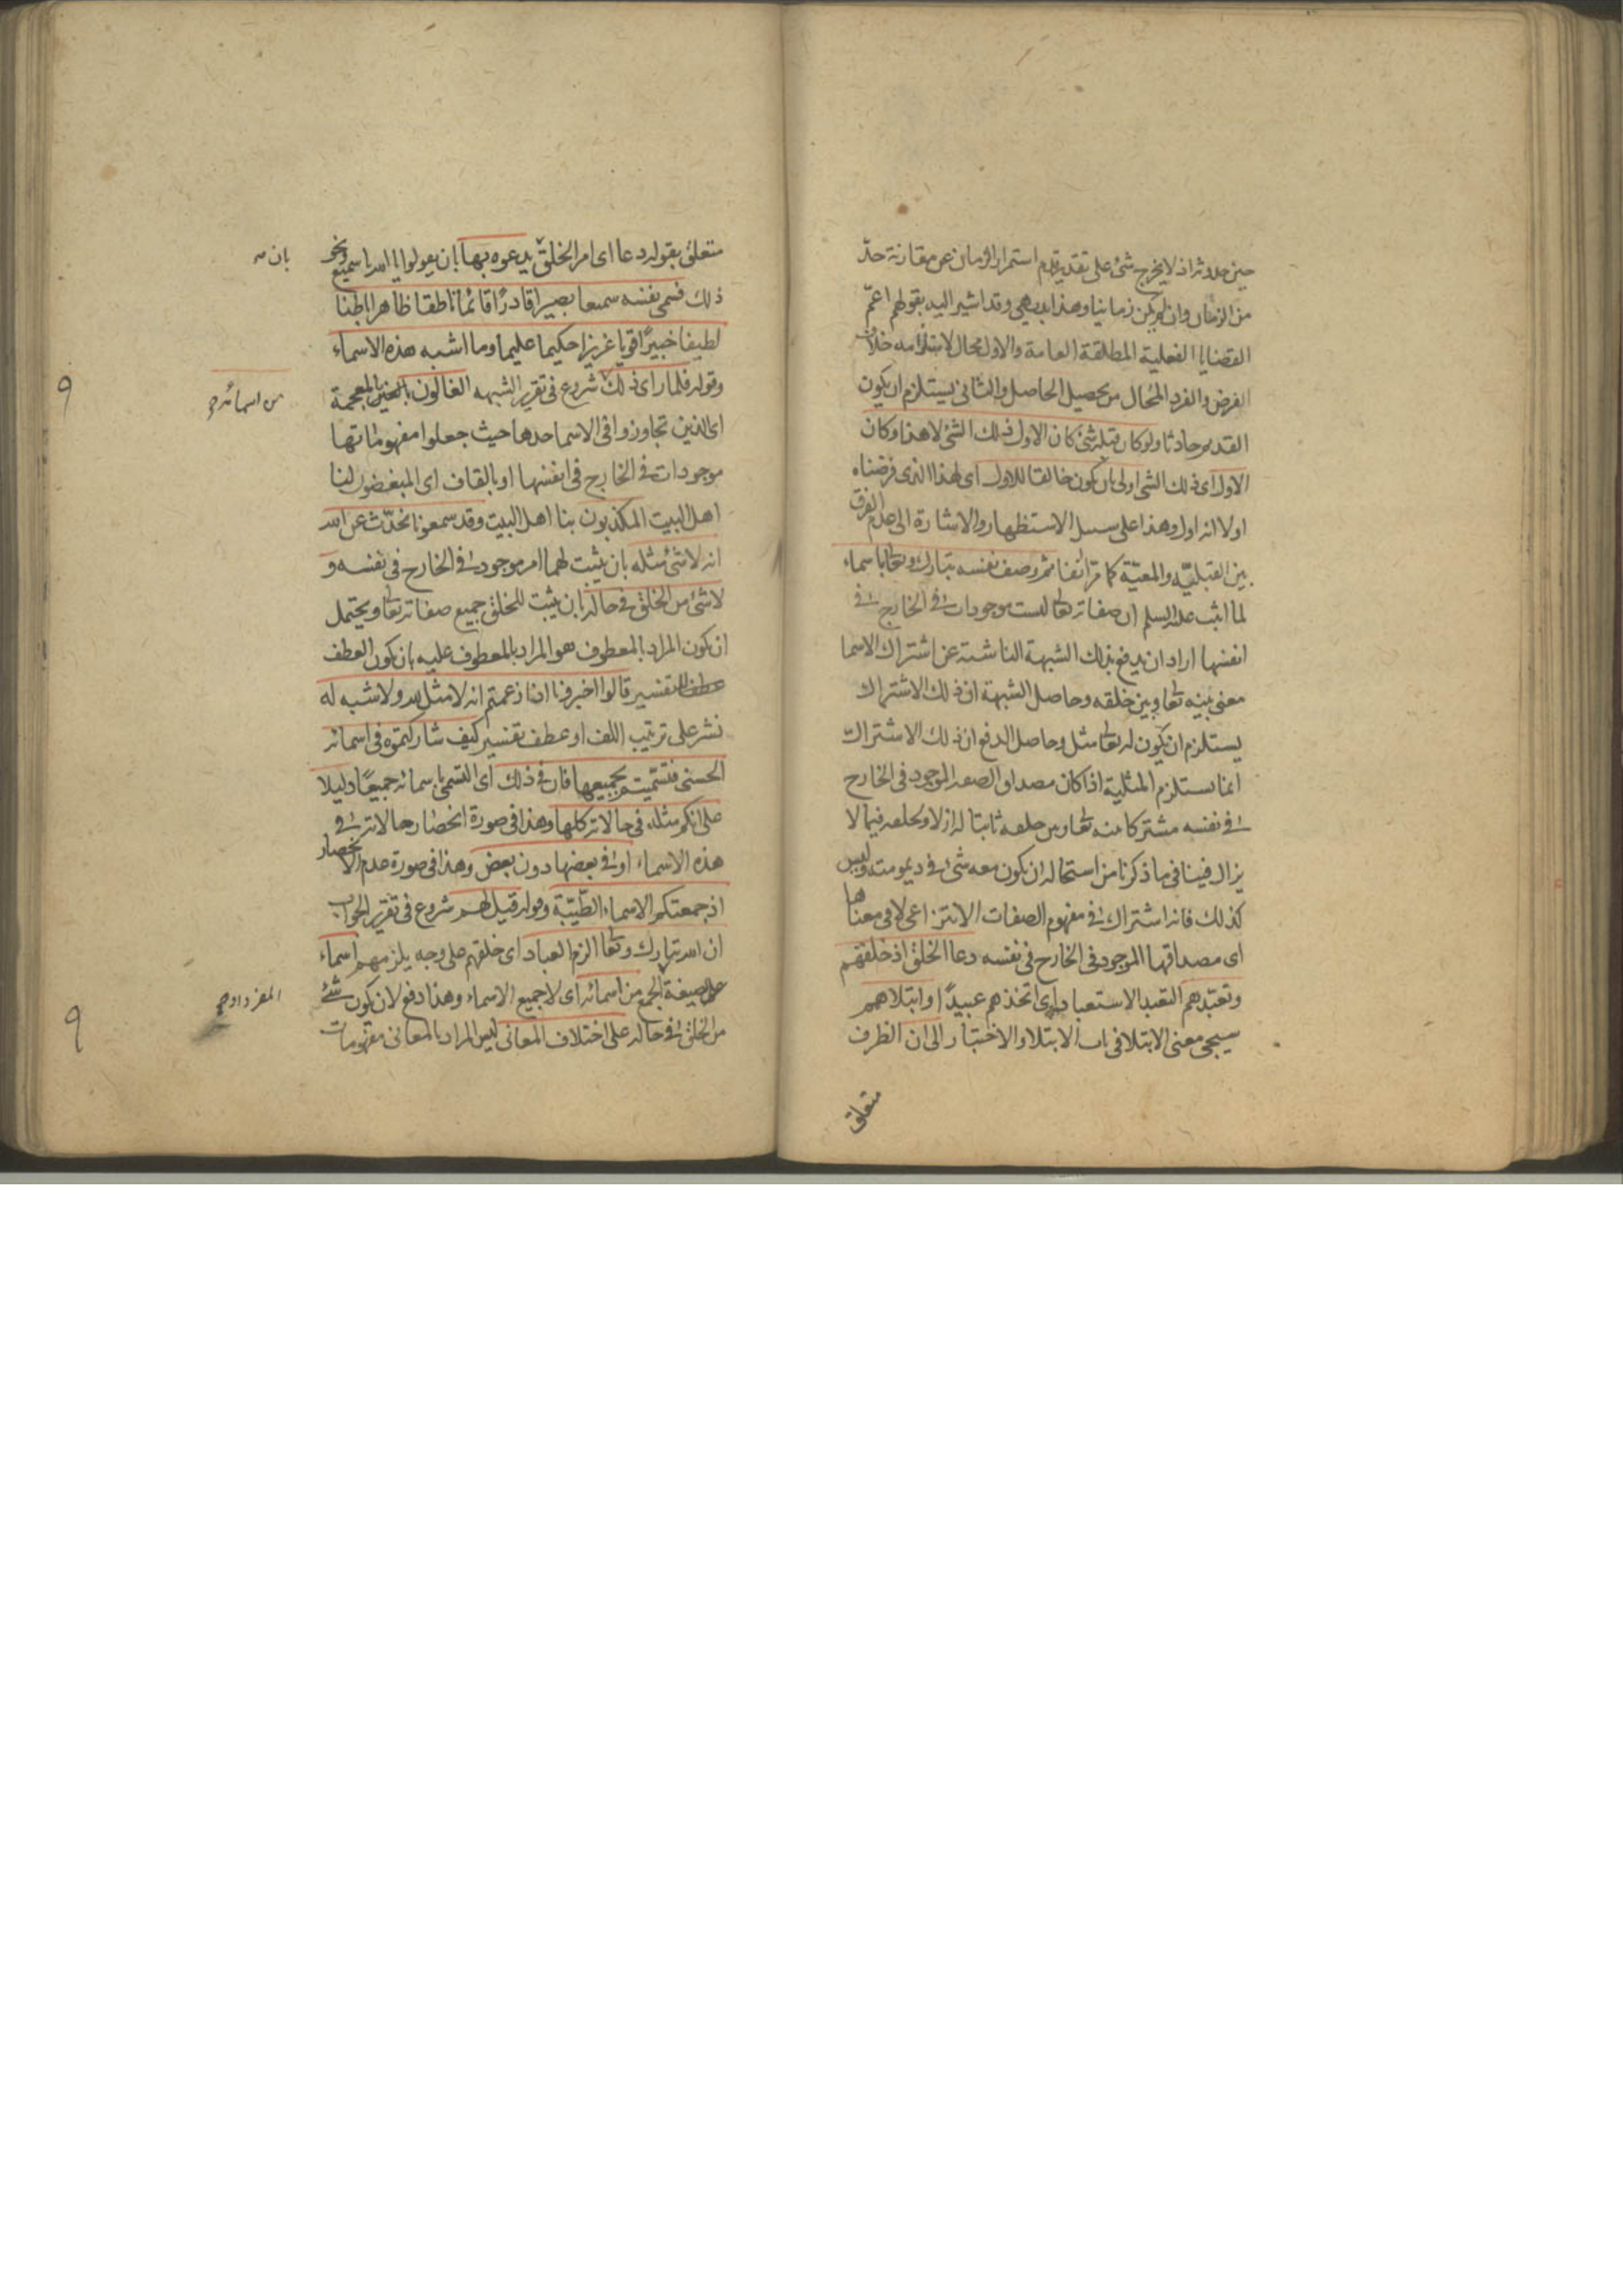 حين حدوثه اذ لا يخرج شئ على تقدير قدم استمرار الزمان عن مقارنة حدّ
من الزمان وان لم يكن زمانيا وهذا بديهى وقد اشير اليه بقولهم اعمّ
القضايا الفعلية المطلقة العامة والاول محال لاستلزامه خلاف
الفرض والفرد المحال من تحصيل الحاصل والثانى يستلزم ان يكون
القديم حادثا ولو كان قبله شئ كان الاول ذلك الشئ لا هذا وكان
الاول اى ذلك الشى اولى بان يكون خالقا للاول اى لهذا الذى فرضناه
اولا انه اول وهذا على سبيل الاستظهار والاشارة الى عدم الفرق
بين القبليّه والمعيّة كما مرّ انفا ثم وصف نفسه تبارك وتعا باسماء
لما اثبت عليه السلم ان صفاته تعا ليست موجودات فى الخارج فى
انفسها اراد ان يدفع بذلك الشبهة الناشئة عن اشتراك الاسما
معنى بينه تعا وبين خلقه وحاصل الشبهة ان ذلك الاشتراك
يستلزم ان يكون له تعا مثل وحاصل الدفع ان ذلك الاشتراك
انما يستلزم المثلية اذا كان مصداق الصفه الموجود فى الخارج
فى نفسه مشتركا بينه تعا وبين خلقه ثابتا له ازلا ولخلقه فيما لا
يزال فينافى ما ذكرنا من استحاله ان يكون معه شئ فى ديمومته وليس
كذلك فانه اشتراك فى مفهوم الصفات الانتزاعى لا فى معناها
اى مصداقها الموجود فى الخارج فى نفسه دعا الخلق اذ خلقهم
وتعبّدهم التعبد الاستعباد اى اتخذهم عبيدًا وابتلاهم
سيجى معنى الابتلا فى باب الابتلاء والاختبار الى ان الظرف
متعلق
متعلق بقوله دعا اى امر الخلق يدعوه بها بان يقولوا يا الله يا سميع ونحو
بان
ذلك فسمى نفسه سميعا بصيرا قادرًا قائمًا ناطقا ظاهرا باطنا
لطيفا خبيرًا قويا عزيزا حكيما عليما وما اشبه هذه الاسماء
وقوله فلما راى ذلك شروع فى تقرير الشبهه الغالون بالغين المعجمة
من اسمائه
اى الذين تجاوزوا فى الاسما حدها حيث جعلوا مفهوماتها
موجودات فى الخارج فى انفسها او بالقاف اى المبغضون لنا
اهل البيت المكذبون بنا اهل البيت وقد سمعونا نحدّث عن الله
انه لا شئ مثله بان يثبت لهما امر موجود فى الخارج فى نفسه و
لا شئ من الخلق فى حاله بان يثبت للخلق جميع صفاته تعا ويحتمل
ان يكون المراد بالمعطوف هو المراد بالمعطوف عليه بان يكون العطف
للتفسير قالوا اخبرونا اذا زعمتم انه لا مثل لله ولا شبه له
نشر على ترتيب اللف او عطف تفسير كيف شاركتموه فى اسمائه
الحسنى فتسّميتم بجميعها فان فى ذلك اى التسمى باسمائه جميعًا دليلا
على انكم مثله فى حالاته كلها وهذا فى صورة انحصار حالاته فى
هذه الاسماء او فى بعضها دون بعض وهذا فى صورة عدم الانحصار
اذ جمعتكم الاسماء الطّيّبة وقوله قيل لهم شروع فى تقرير الجواب
ان الله تبارك وتعا الزم العباد اى خلقهم على وجه يلزمهم اسماء
على صيغة الجمع من اسمائه اى لا جميع الاسماء وهذا دفع لان يكون شئ
من الخلق فى حاله على اختلاف المعانى ليس المراد بالمعانى مفهومات